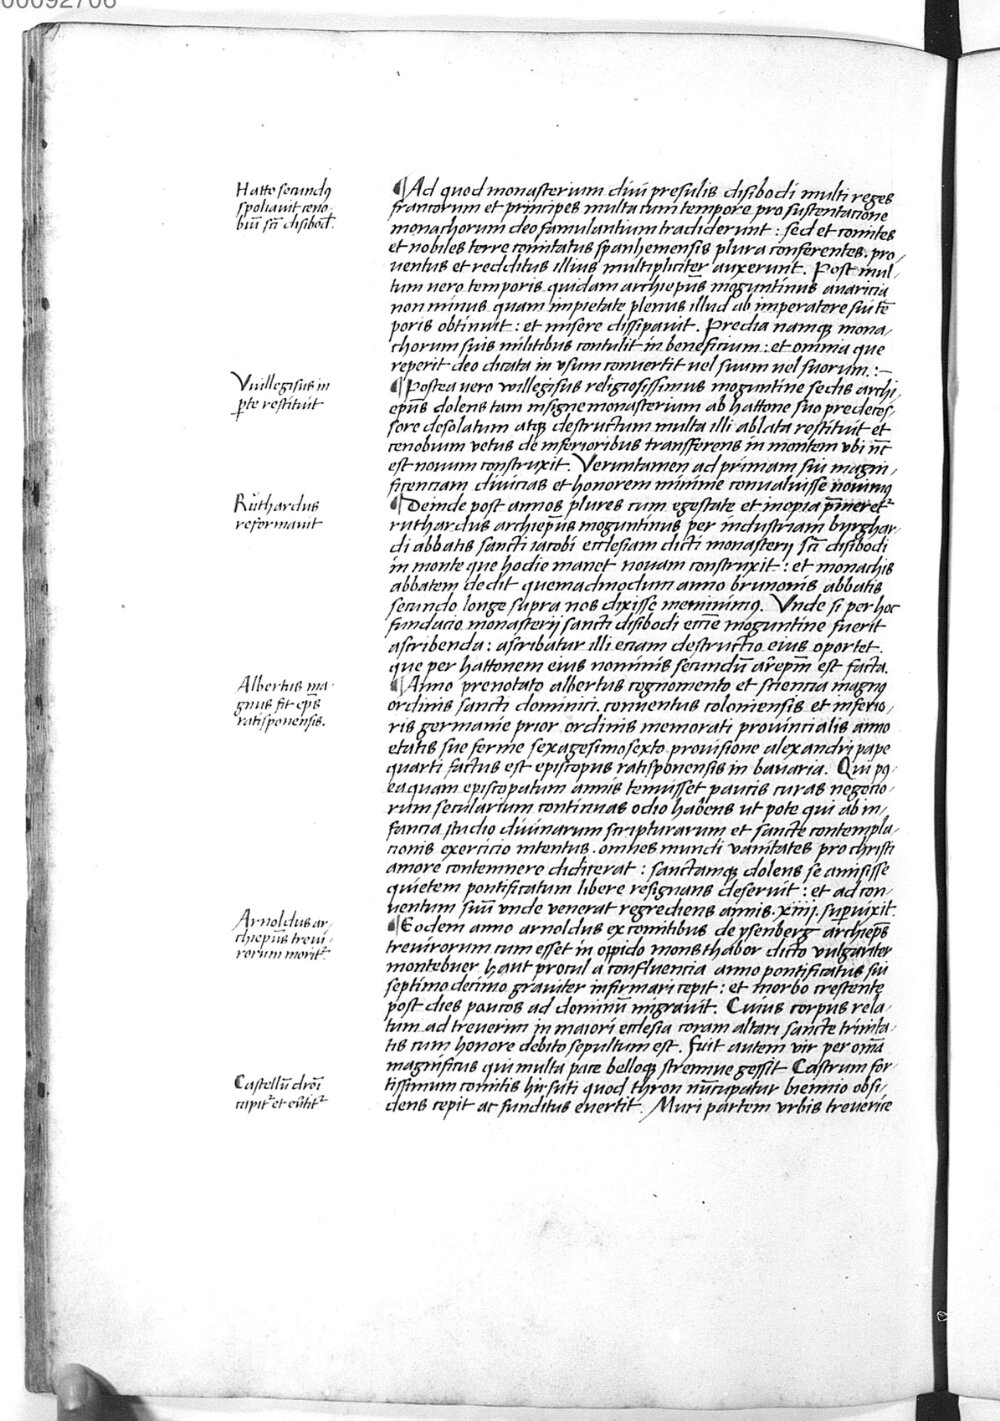 00092706
Hatto secundꝰ
spoliavit ceno
biū scī disibodī
¶Ad quod monasterium divi presulis disibodi multi reges
francorum et principes multa cum tempore pro sustentacione
monachorum deo famulantium tradiderunt : sed et comites
et nobiles terre comitatus spanhemensis plura conferentes. pro,
ventus et redditus illius multipliciter auxerunt. Post mul,
tum vero temporis quidam archiepūs moguntinus avaricia
non minus quam impietate plenus illud ab imperatore sui tē
poris obtinuit : et misere dissipavit. Predia namqꝫ mona,
chorum suis militibus contulit in beneficium : et omnia que
reperit deo dicata in vsum convertit vel suum vel suorum. :~
Vuillegisus in
ꝑte restituit
¶Postea vero willegisus religiosissimus moguntine sedis archi,
epūs dolens tam insigne monasterium ab hattone suo predeces,
sore desolatum atqꝫ destructum multa illi ablata restituit et
cenobium vetus de inferioribus transferens in montem vbi nūc
est novum construxit. Veruntamen ad primam sui magni,
ficenciam divicias et honorem minime convaluisse novimꝰ
Růthardus
reformavit
¶Deinde post annos plures cum egestate et inopia p̄meret᷑
ruthardus archiepūs moguntinus per industriam burghar,
di abbatis sancti iacobi ecclesiam dicti monasterij scī disibodi
in monte que hodie manet novam construxit : et monachis
abbatem dedit quemadmodum anno brunonis abbatis
secundo longe supra nos dixisse meminimꝰ. Vnde si per hoc
fundacio monasterij sancti disibodi eccīe moguntine fuerit
ascribenda : ascribatur illi eciam destructio eius oportet.
que per hattonem eius nominis secundū arēpm̄ est facta.
Albertus ma,
gnus fit ep̄s
ratisponensis.
¶Anno prenotato albertus cognomento et sciencia magnꝰ
ordinis sancti dominici. conventus coloniensis et inferio,
ris germanie prior ordinis memorati provincialis anno
etatis sue ferme sexagesimosexto provisione alexandri pape
quarti factus est episcopus ratisponensis in bavaria. Qui pꝰ,
ea quam episcopatum annis tenuisset paucis curas negocio,
rum secularium continuas odio habens ut pote qui ab in,
fancia studio divinarum scripturarum et sancte contempla,
cionis exercicio intentus. omnes mundi vanitates pro christi
amore contemnere didicerat : sanctamqꝫ dolens se amisisse
quietem pontificatum libere resignans deseruit : et ad con,
ventum suū vnde venerat regrediens annis. xiiij. suꝑvixit.
Arnoldus ar,
chiepūs trevi,
rorum morit᷑
¶Eodem anno arnoldus ex comitibus de ysenberg archiep̄s
trevirorum cum esset in oppido mons thabor dicto vulgariter
montebuer haut procul a confluencia anno pontificatus sui
septimo decimo graviter infirmari cepit : et morbo crescente
post dies paucos ad dominū migravit. Cuius corpus rela,
tum ad treverim in maiori ecclesia coram altari sancte trinita,
tis cum honore debito sepultum est. Fuit autem vir per om̄a
magnificus qui multa pace belloqꝫ strennue gessit Castrum for,
Castellū
capit᷑ et
tissimum comitis hirsuti quod thron nūcupatur biennio obsi,
dens cepit ac funditus evertit. Muri partem vrbis treverice